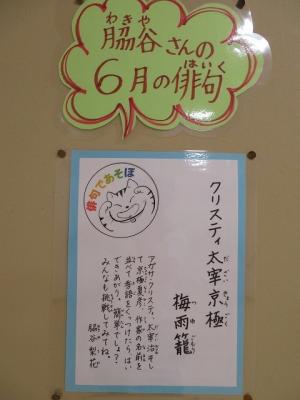 脇谷さんの
わきや
6月の俳句
はいく
俳句であそぼ
クリスティ太宰京極
だざい きょうごく
梅雨籠
つゆごもり
アガサ・クリスティ、太宰治、そし
て京極夏彦。作家の名前を
並べて季語をくっつけたらはい
できあがり。簡単でしょ？
みんなも挑戦してみてね。
脇谷梨花